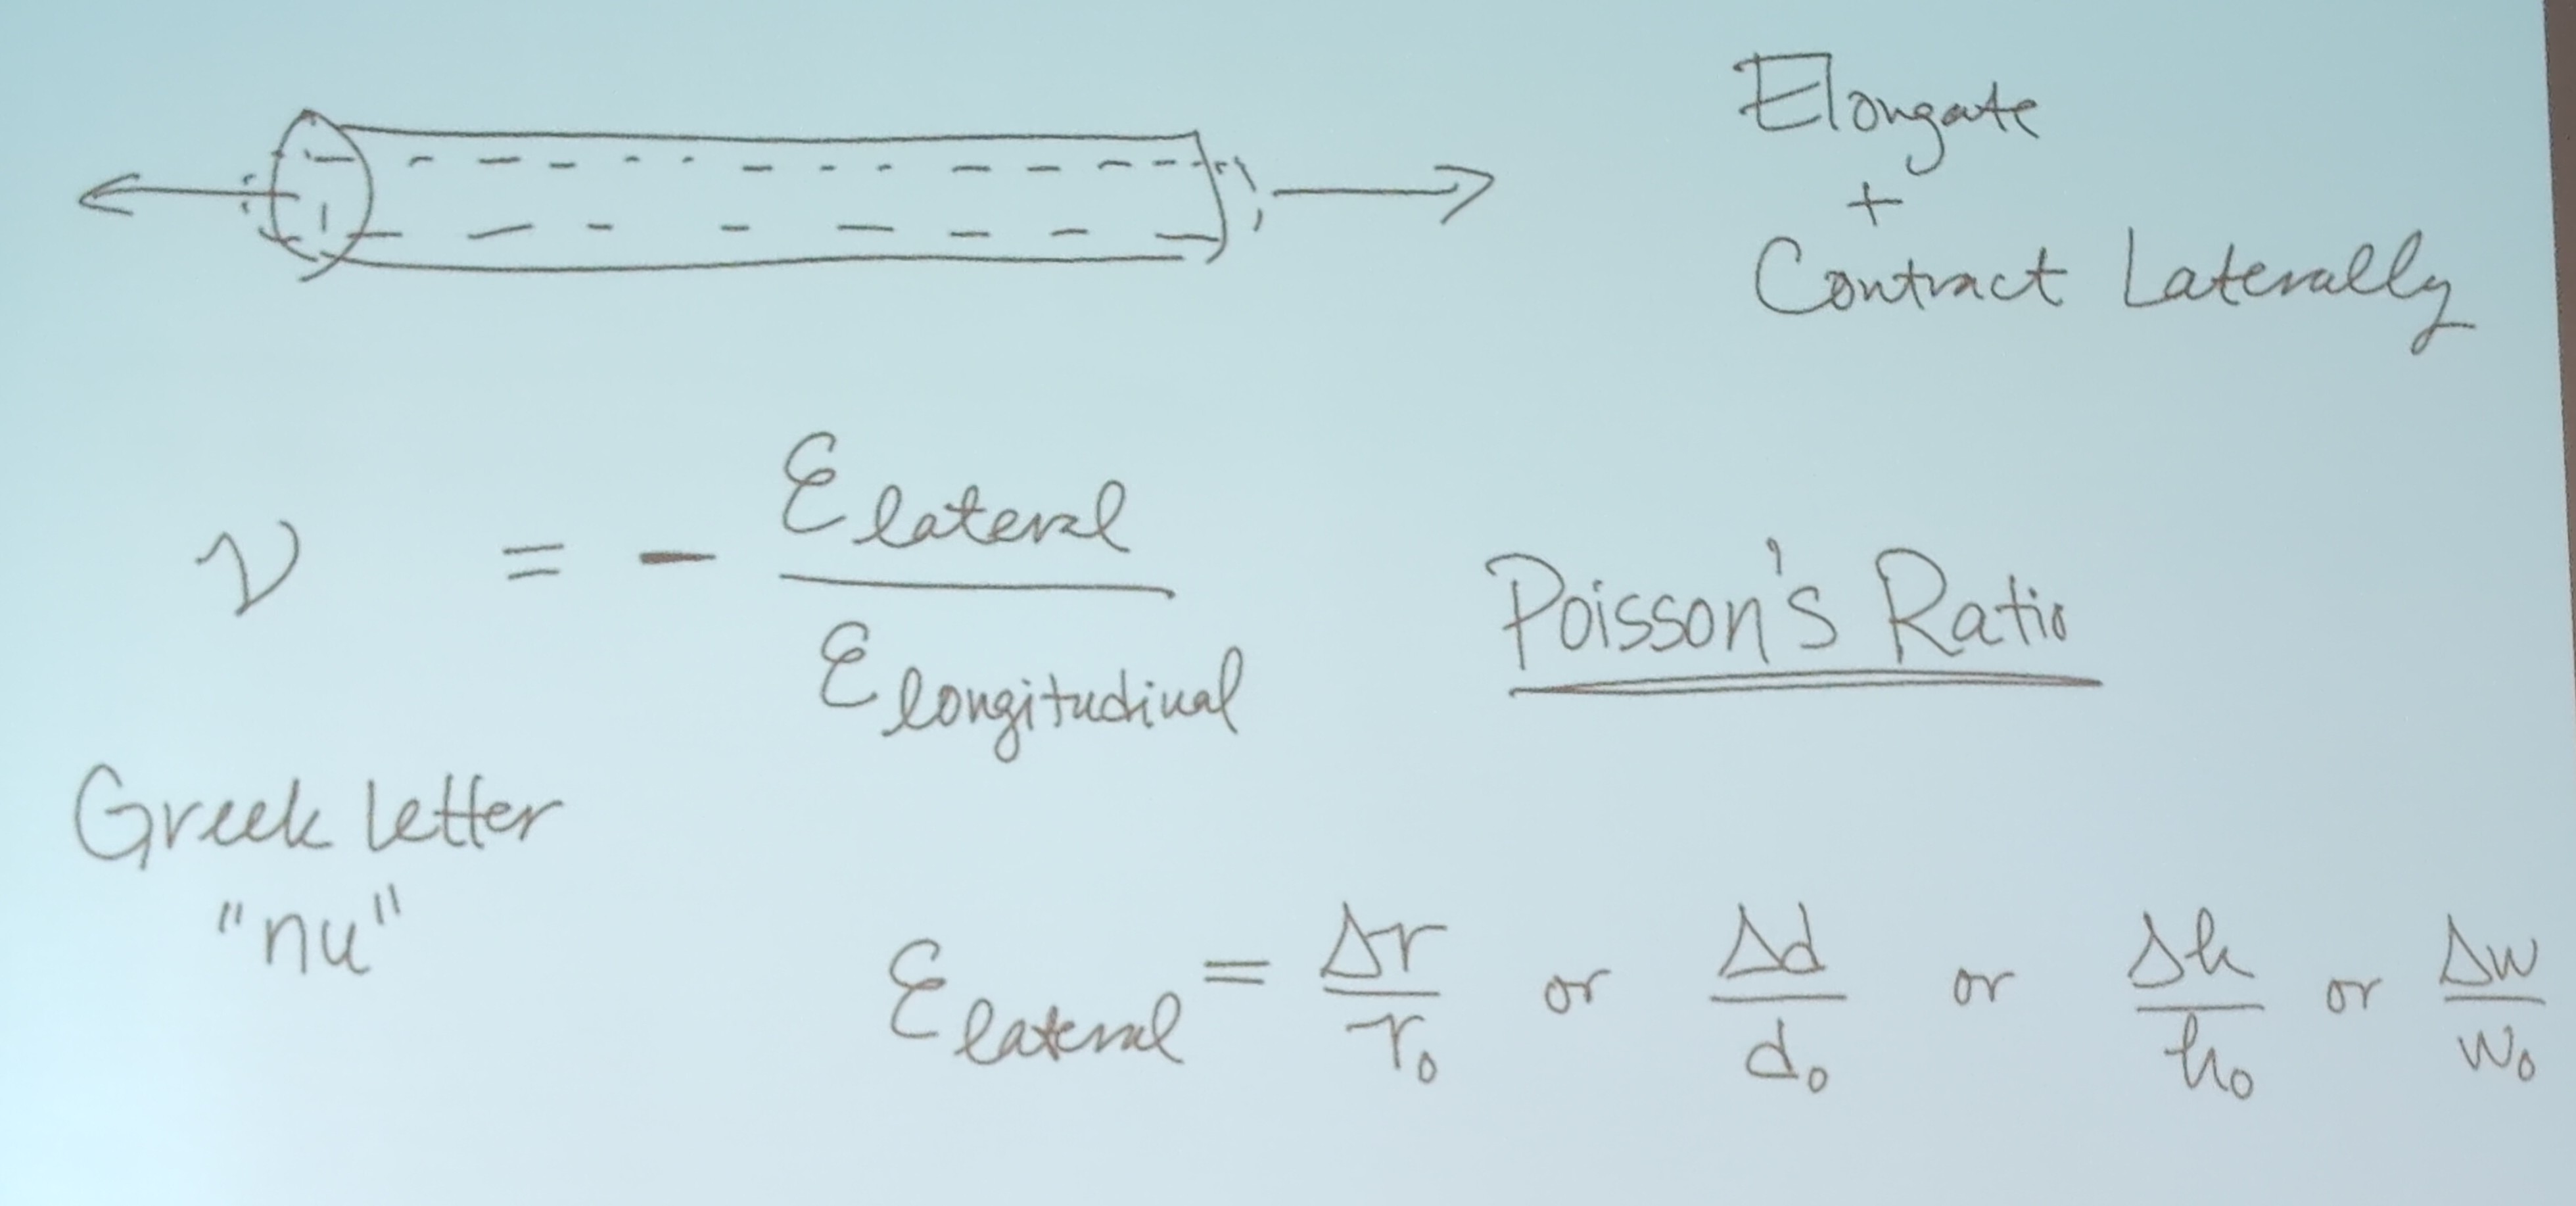 Elongate
+
Contract Laterally
ν = - ε lateral / ε longitudinal
Poisson's Ratio
Greek letter
"nu"
ε lateral = Δr/r₀ or Δd/d₀ or Δh/h₀ or Δw/w₀